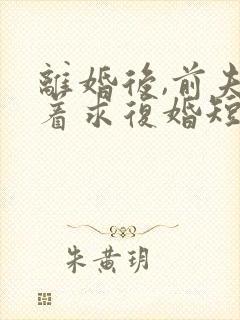 離婚後,前夫
着求復婚短
朱黄玥